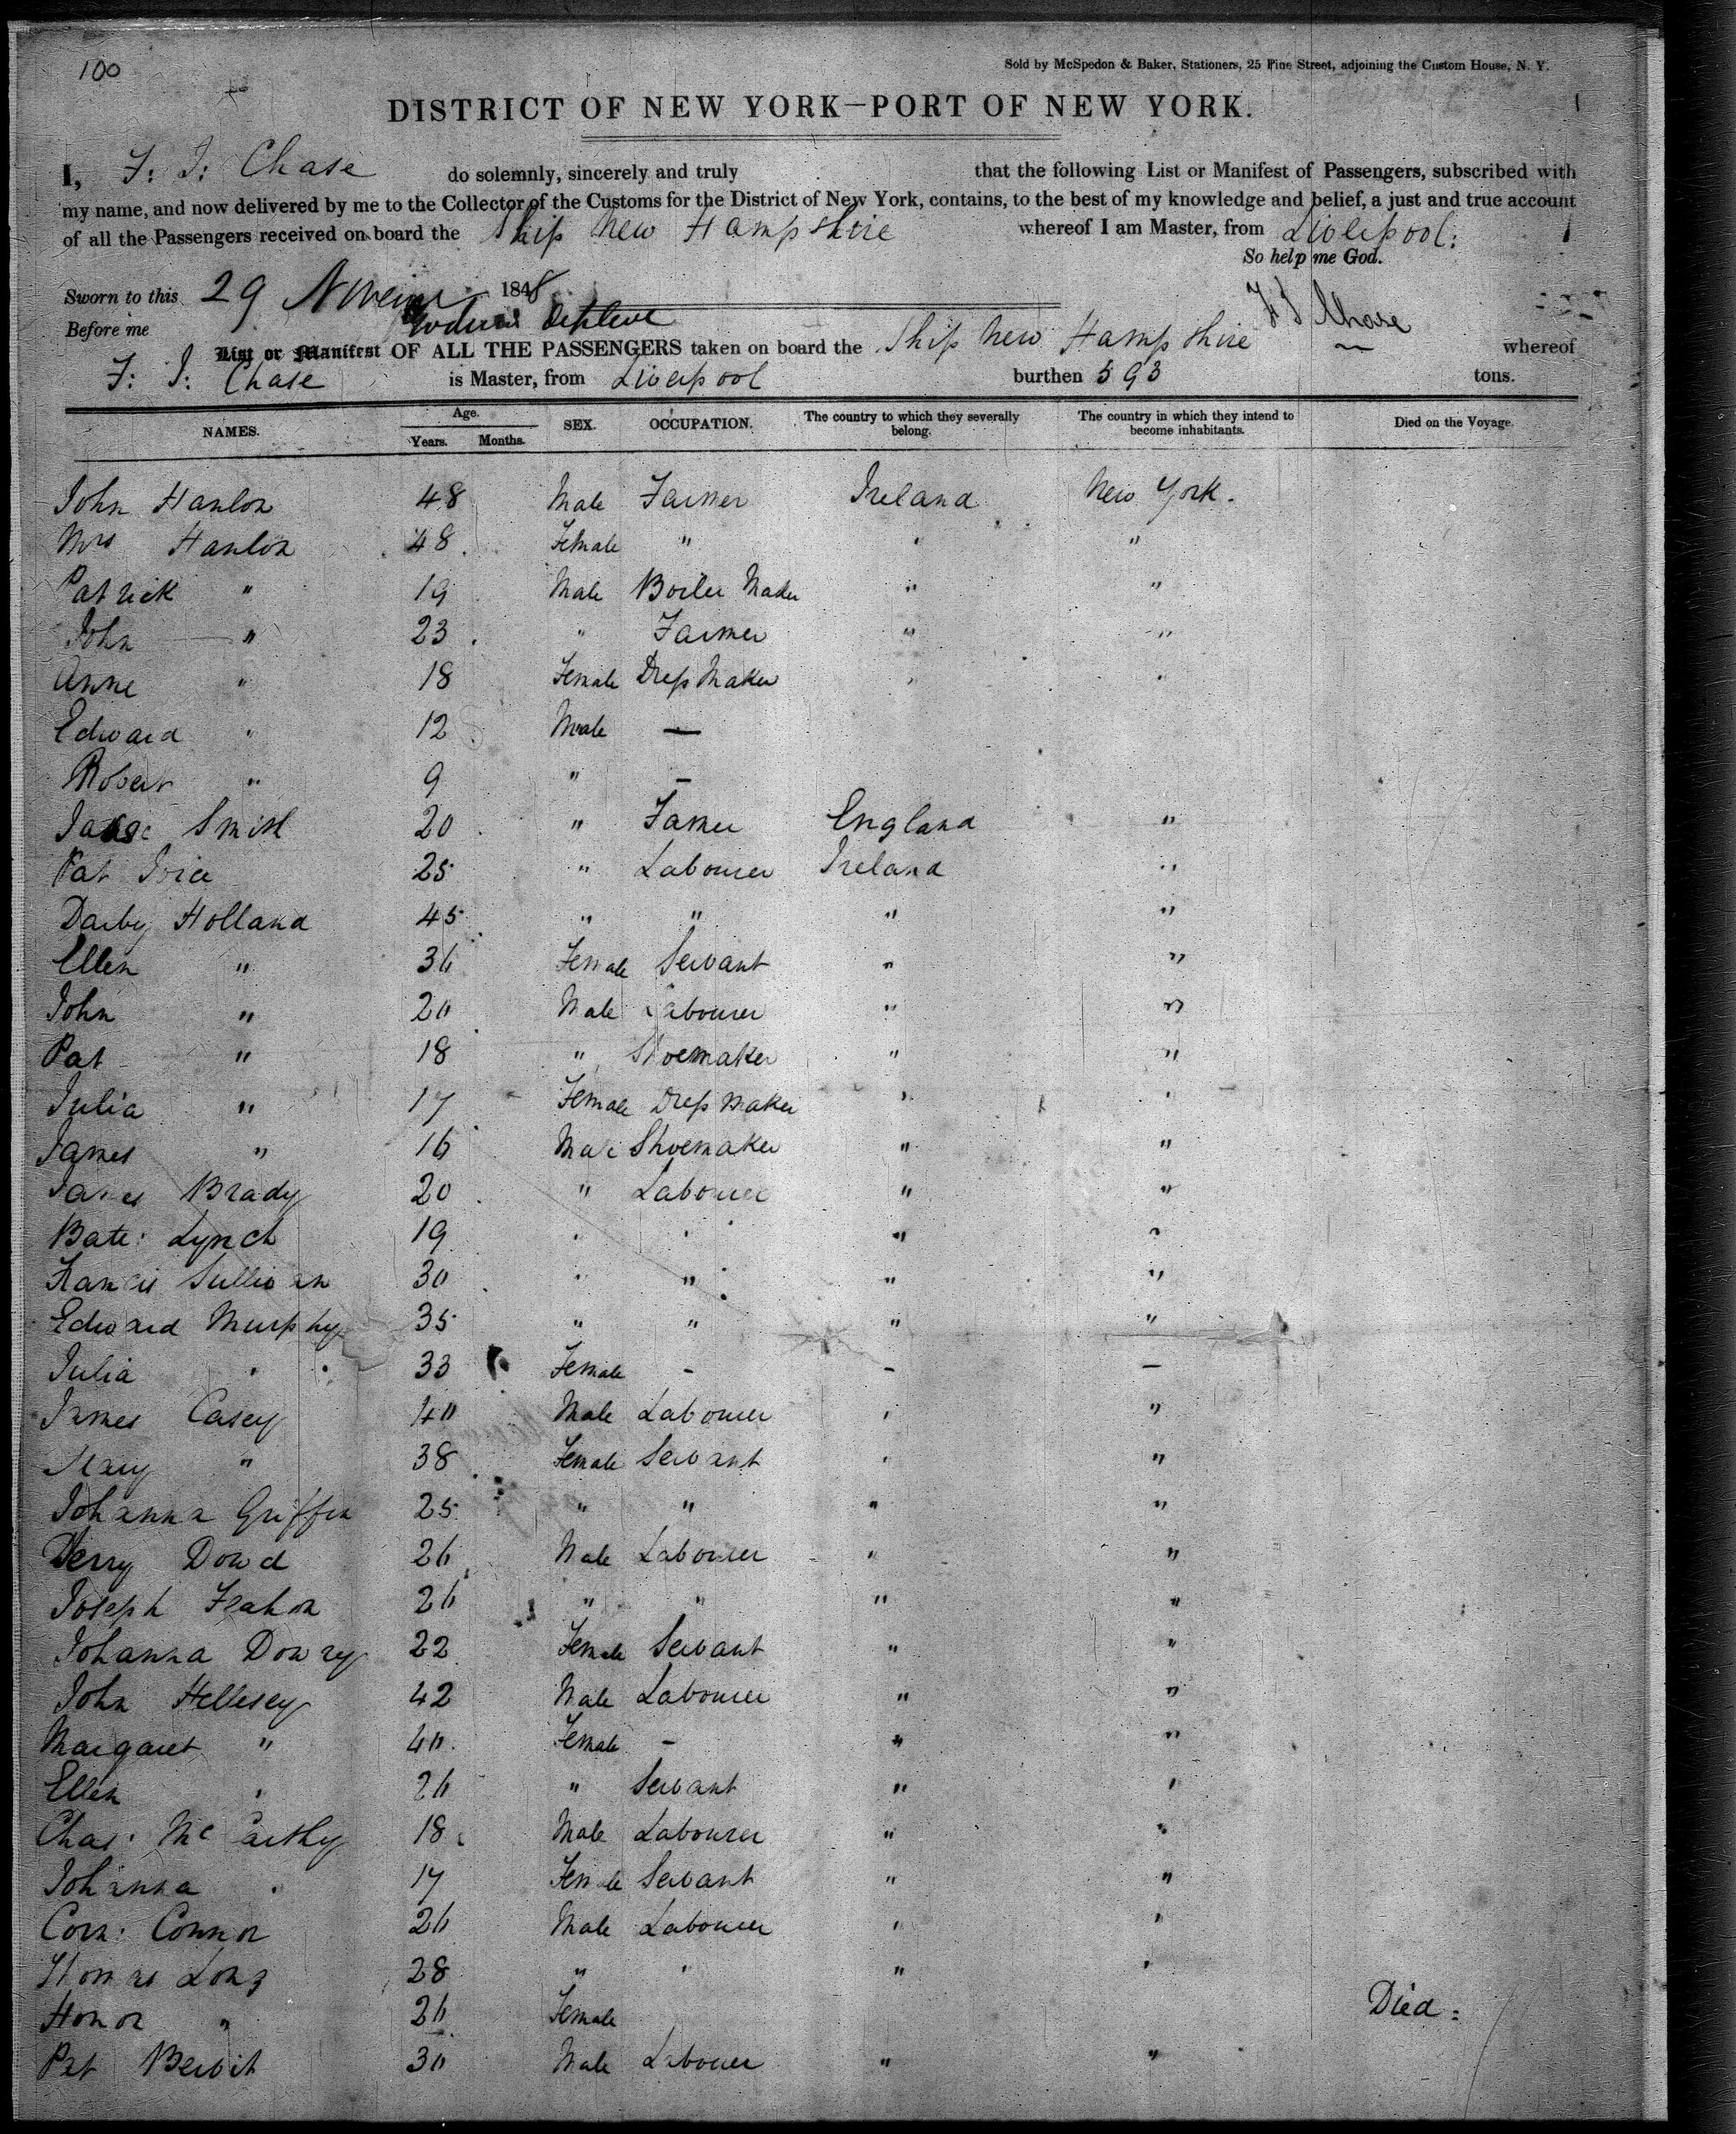 100
Sold by McSpedon & Baker, Stationers, 25 Pine Street, adjoining the Custom House, N. Y.
DISTRICT OF NEW YORK—PORT OF NEW YORK.
I, F: I: Chase do solemnly, sincerely and truly that the following List or Manifest of Passengers, subscribed with
my name, and now delivered by me to the Collector of the Customs for the District of New York, contains, to the best of my knowledge and belief, a just and true account
of all the Passengers received on board the Ship New Hampshire whereof I am Master, from Liverpool:
So help me God.
Sworn to this 29 1848
Before me
Chase
List or Manifest OF ALL THE PASSENGERS taken on board the Ship New Hampshire whereof
F: I: Chase is Master, from Liverpool burthen 593 tons.
NAMES. Age. Years. Months. SEX. OCCUPATION. The country to which they severally belong. The country in which they intend to become inhabitants. Died on the Voyage.
John Hanlon 48 Male Farmer Ireland New York.
Mrs Hanlon 48 Female " " "
Patrick " 19 Male Boiler Maker " "
John " 23 " Farmer " "
Anne " 18 Female Dress Maker " "
Edward " 12 Male —
Robert " 9 " —
Smith 20 " Farmer England "
Pat 25 " Labourer Ireland "
Darby Holland 45 " " " "
Ellen " 36 Female Servant " "
John " 20 Male Labourer " "
Pat " 18 " Shoemaker " "
Julia " 17 Female Dress Maker " "
James " 16 Male Shoemaker " "
James Brady 20 " Labourer " "
Bate: Lynch 19 " " " "
Francis Sullivan 30 " " " "
Edward Murphy 35 " " " "
Julia " 33 Female - - —
James Casey 40 Male Labourer " "
Mary " 38 Female Servant " "
Johanna Griffin 25 " " " "
Dowd 26 Male Labourer " "
Joseph Feahon 26 " " " "
Johanna Dowry 22 Female Servant " "
John Hellesey 42 Male Labourer " "
Margaret " 40 Female - " "
Ellen " 26 " Servant " "
Chas: McCarthy 18 Male Labourer " "
Johanna " 17 Female Servant " "
Corn: Connor 26 Male Labourer " "
Thomas Long 28 " " " "
Honor " 26 Female Died:
Pat 30 Male Labourer " "